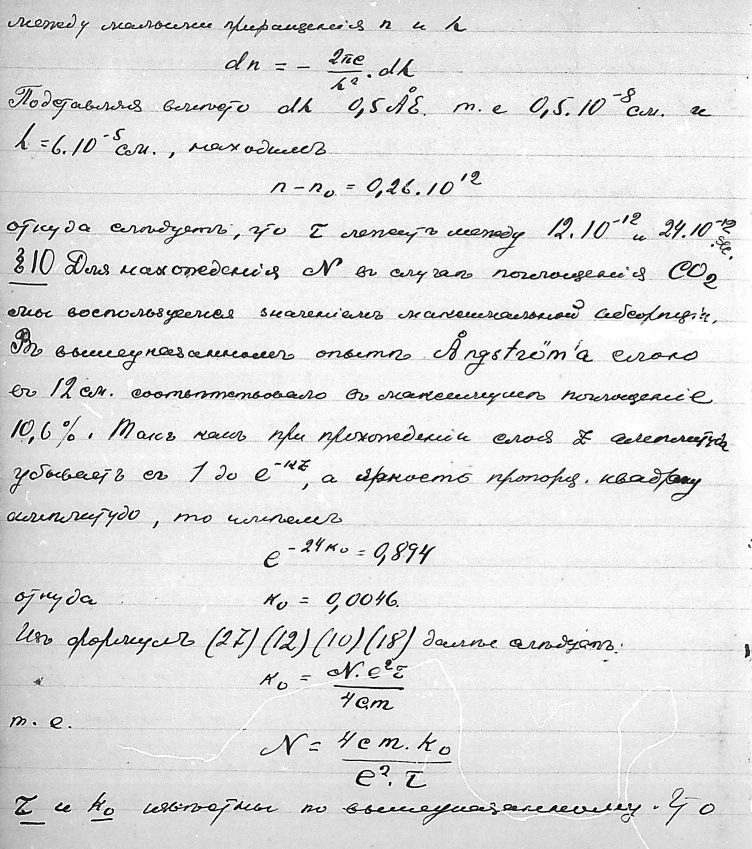 между малыми приращенiя n и λ
dn = - 2πc/λ² . dλ
Подставляя вместо dλ 0,5 ÅE. т. е 0,5.10⁻⁸ см. и
λ = 6.10⁻⁵ см., находимъ
n - n₀ = 0,26.10¹²
откуда слѣдуетъ, что τ лежитъ между 12.10⁻¹² и 24.10⁻¹²
§10 Для нахожденiя N въ случаѣ поглощенiя CO₂
мы воспользуемся значенiемъ максимальной абсорпцiи.
Въ вышеуказанномъ опытѣ Ångström'а слою
въ 12 см. соотвѣтствовало въ максимумѣ поглощенiе
10,6 %. Такъ какъ при прохожденiи слоя z амплитуда
убываетъ съ 1 до e⁻ᵏᶻ, а яркость пропорц. квадрату
амплитудо, то имѣемъ
e⁻²⁴ᵏ⁰ = 0,894
откуда κ₀ = 0,0046.
Изъ формулъ (27) (12) (10) (18) далѣе слѣдуетъ:
κ₀ = N.e²τ/4cm
т. е.
N = 4cm.k₀/e².τ
τ и k₀ извѣстны по вышеуказанному. Что